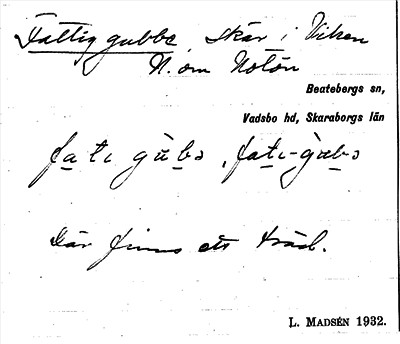 Fattiggubbe, skär i Viken
N. om Notön
Beatebergs sn,
Vadsbo hd, Skaraborgs län
fati gùbə, fati-gubə
Där finns ett träd.
L. MADSÉN 1932.